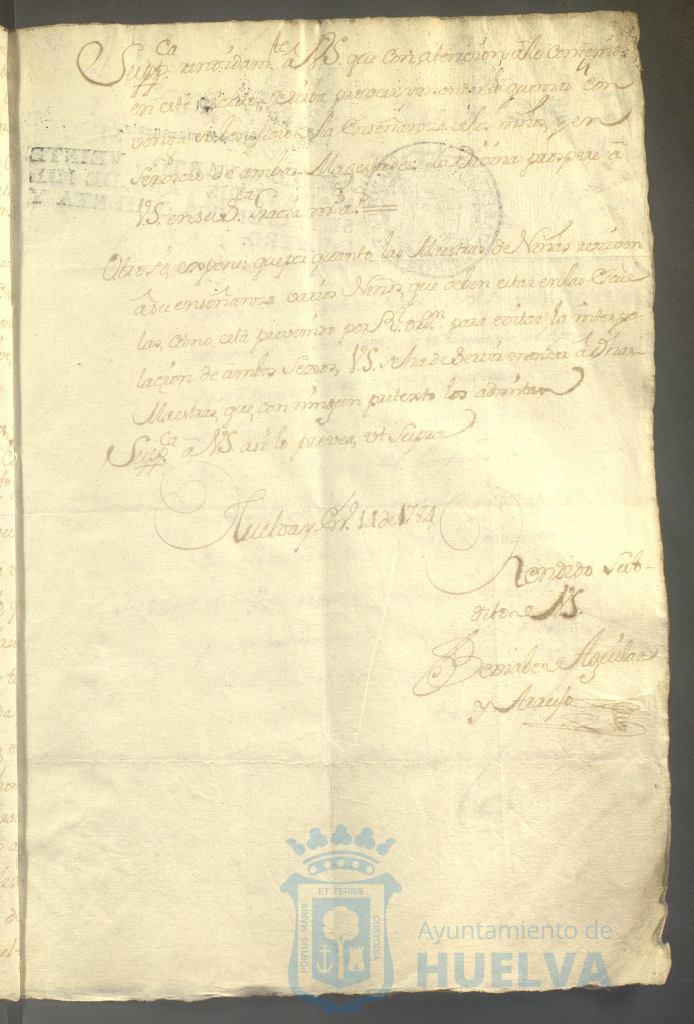 Supp.ca rendidam.te a V.S. que con atencion a lo contenido
en este se sirva proveer y mandar lo que mas con
venga en beneficio de la Enseñanza de los niños, y en
servicio de ambas Magestades. La Divina prospere à
V.S. en su S.ta Gracia m.s a.s
Otro si, expone que por quanto las Maestras de Niñas reciven
à su enseñanza varios Niños, que deben estar en las Escue
las, como està prevenido por R.l ord.n para evitar la interpo-
lacion de ambos sexos, V.S. se ha de servir mandar à dhas
Maestras, que con ningun pretexto los admitan
Supp.ca a V.S. asi lo provea, ut supra
Huelva y 11 de 1781
Rendido Sub-
dito de V.S.
Bernabe de Aguilar
y Araujo
PORTUS MARIS
ET TERRÆ
CUSTODIA
Ayuntamiento de
HUELVA